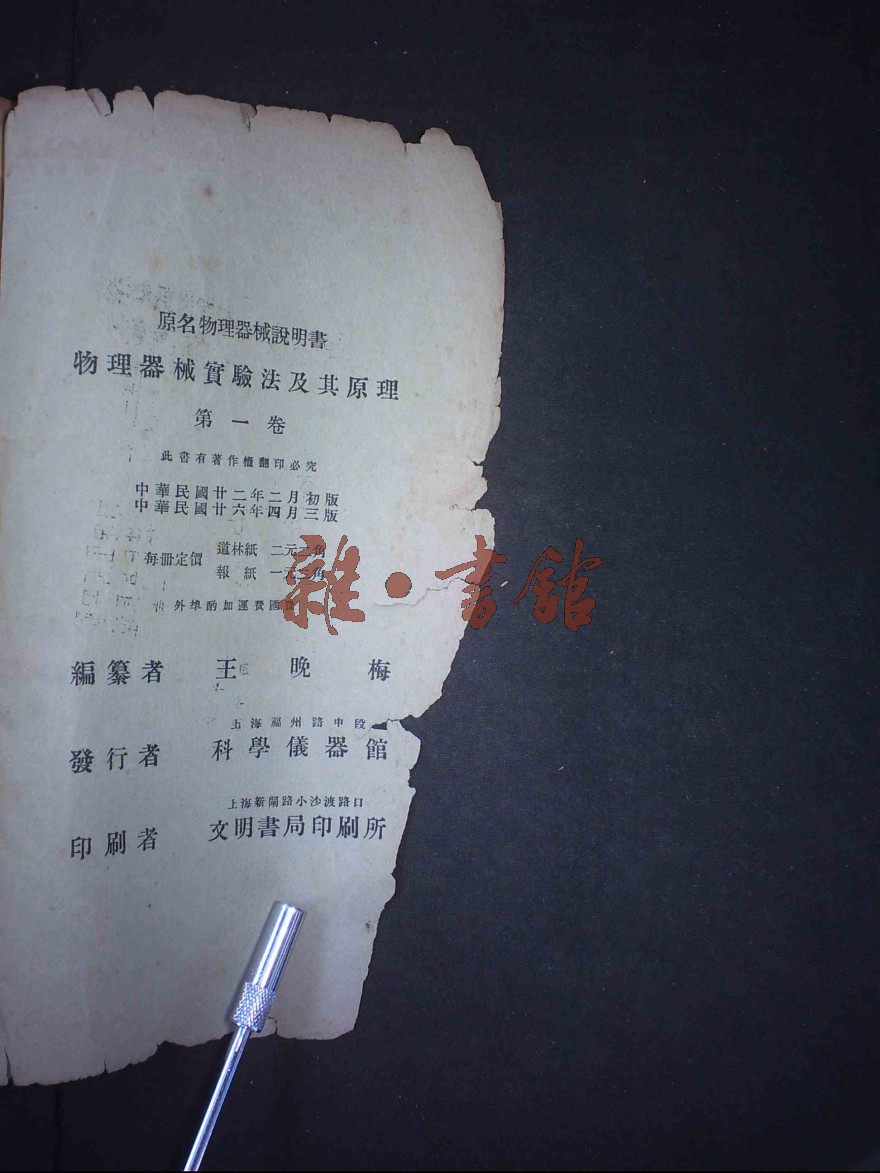 原名物理器械說明書
物理器械實驗法及其原理
第一卷
此書有著作權翻印必究
中華民國廿二年二月初版
中華民國廿六年四月三版
每冊定價
道林紙 二元二角
報紙 一元二角
外埠酌加運費匯費
編纂者 王晚梅
上海福州路中段
發行者 科學儀器館
上海新閘路小沙渡路口
印刷者 文明書局印刷所
雜·書館